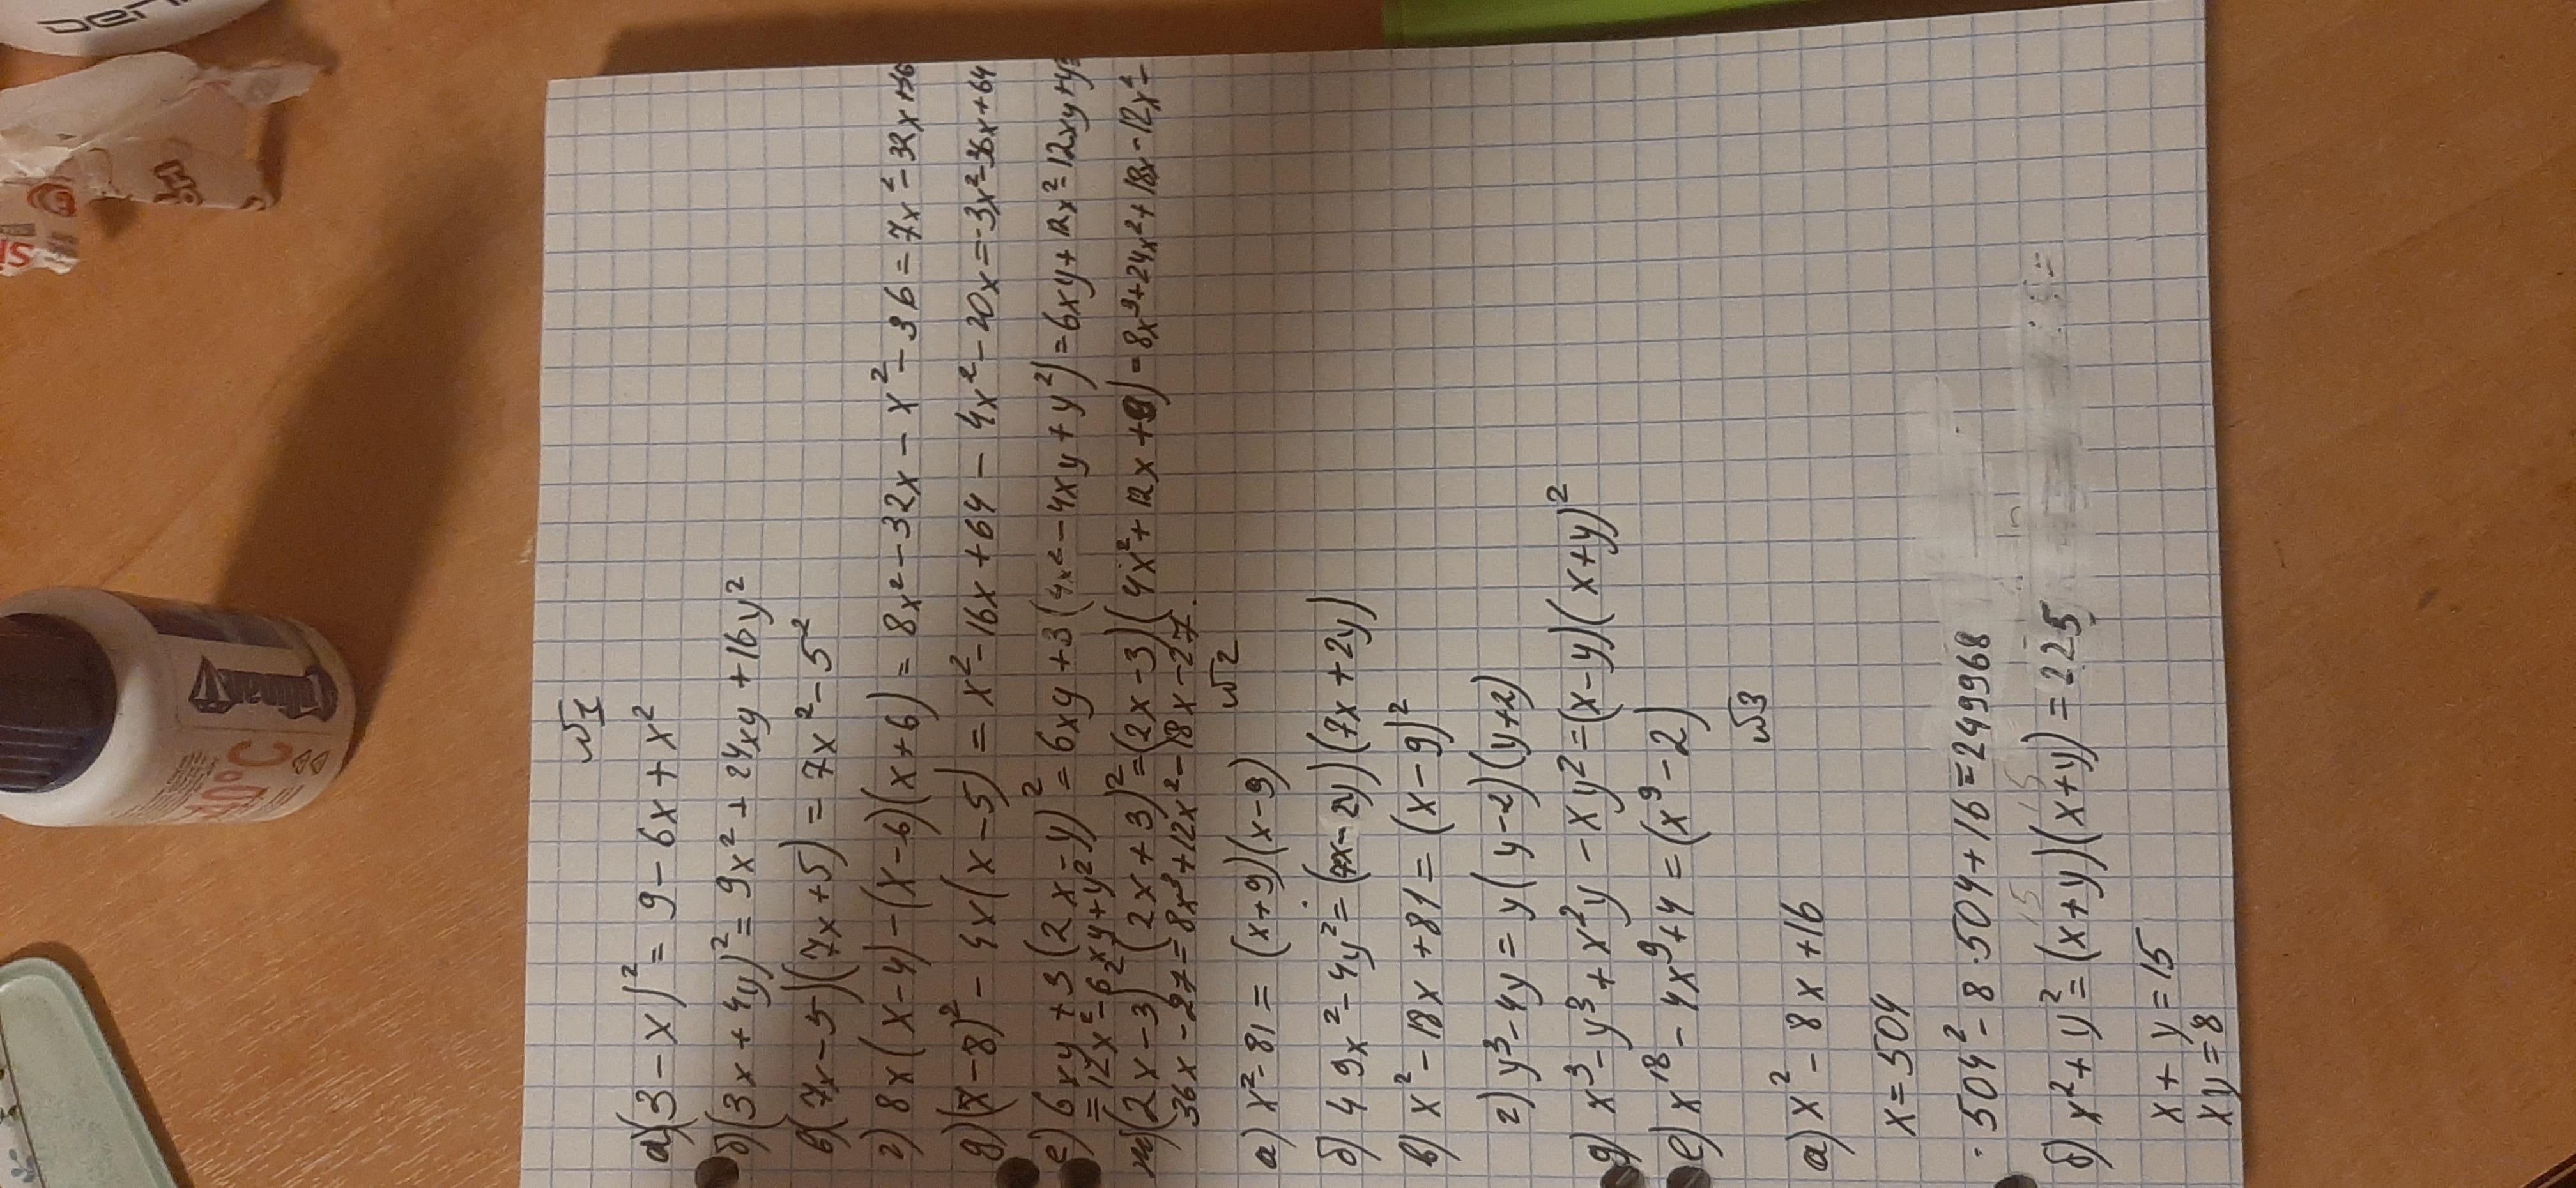 №1
а)(3-x)²=9-6x+x²
б)(3x+4y)²=9x²+24xy+16y²
в)(7x-5)(7x+5)=7x²-5²
г)8x(x-4)-(x-6)(x+6)=8x²-32x-x²-36=7x²-32x+36
д)(x-8)²-4x(x-5)=x²-16x+64-4x²-20x=-3x²-36x+64
е)6xy+3(2x-y)²=6xy+3(4x²-4xy+y²)=6xy+12x²-12xy+y²=
=12x²-6xy+y²
ж)(2x-3)(2x+3)²=(2x-3)(4x²+12x+9)=8x³+24x²+18x-12x²-
36x-27=8x³+12x²-18x-27.
№2
а)x²-81=(x+9)(x-9)
б)49x²-4y²=(7x-2y)(7x+2y)
в)x²-18x+81=(x-9)²
г)y³-4y=y(y-2)(y+2)
д)x³-y³+x²y-xy²=(x-y)(x+y)²
е)x¹⁸-4x⁹+4=(x⁹-2)
№3
а)x²-8x+16
x=504
504²-8·504+16=249968
б)x²+y²=(x+y)(x+y)=225
x+y=15
xy=8
40°C